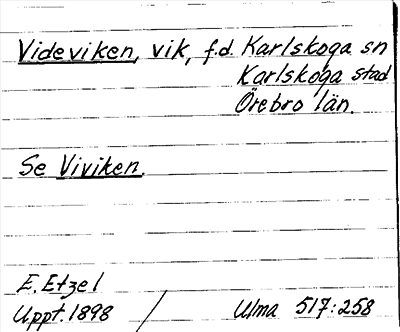 Videviken, vik, f.d. Karlskoga sn
Karlskoga stad
Örebro län.
Se Viviken.
E. Etzel
Uppt. 1898 / Ulma 517:258